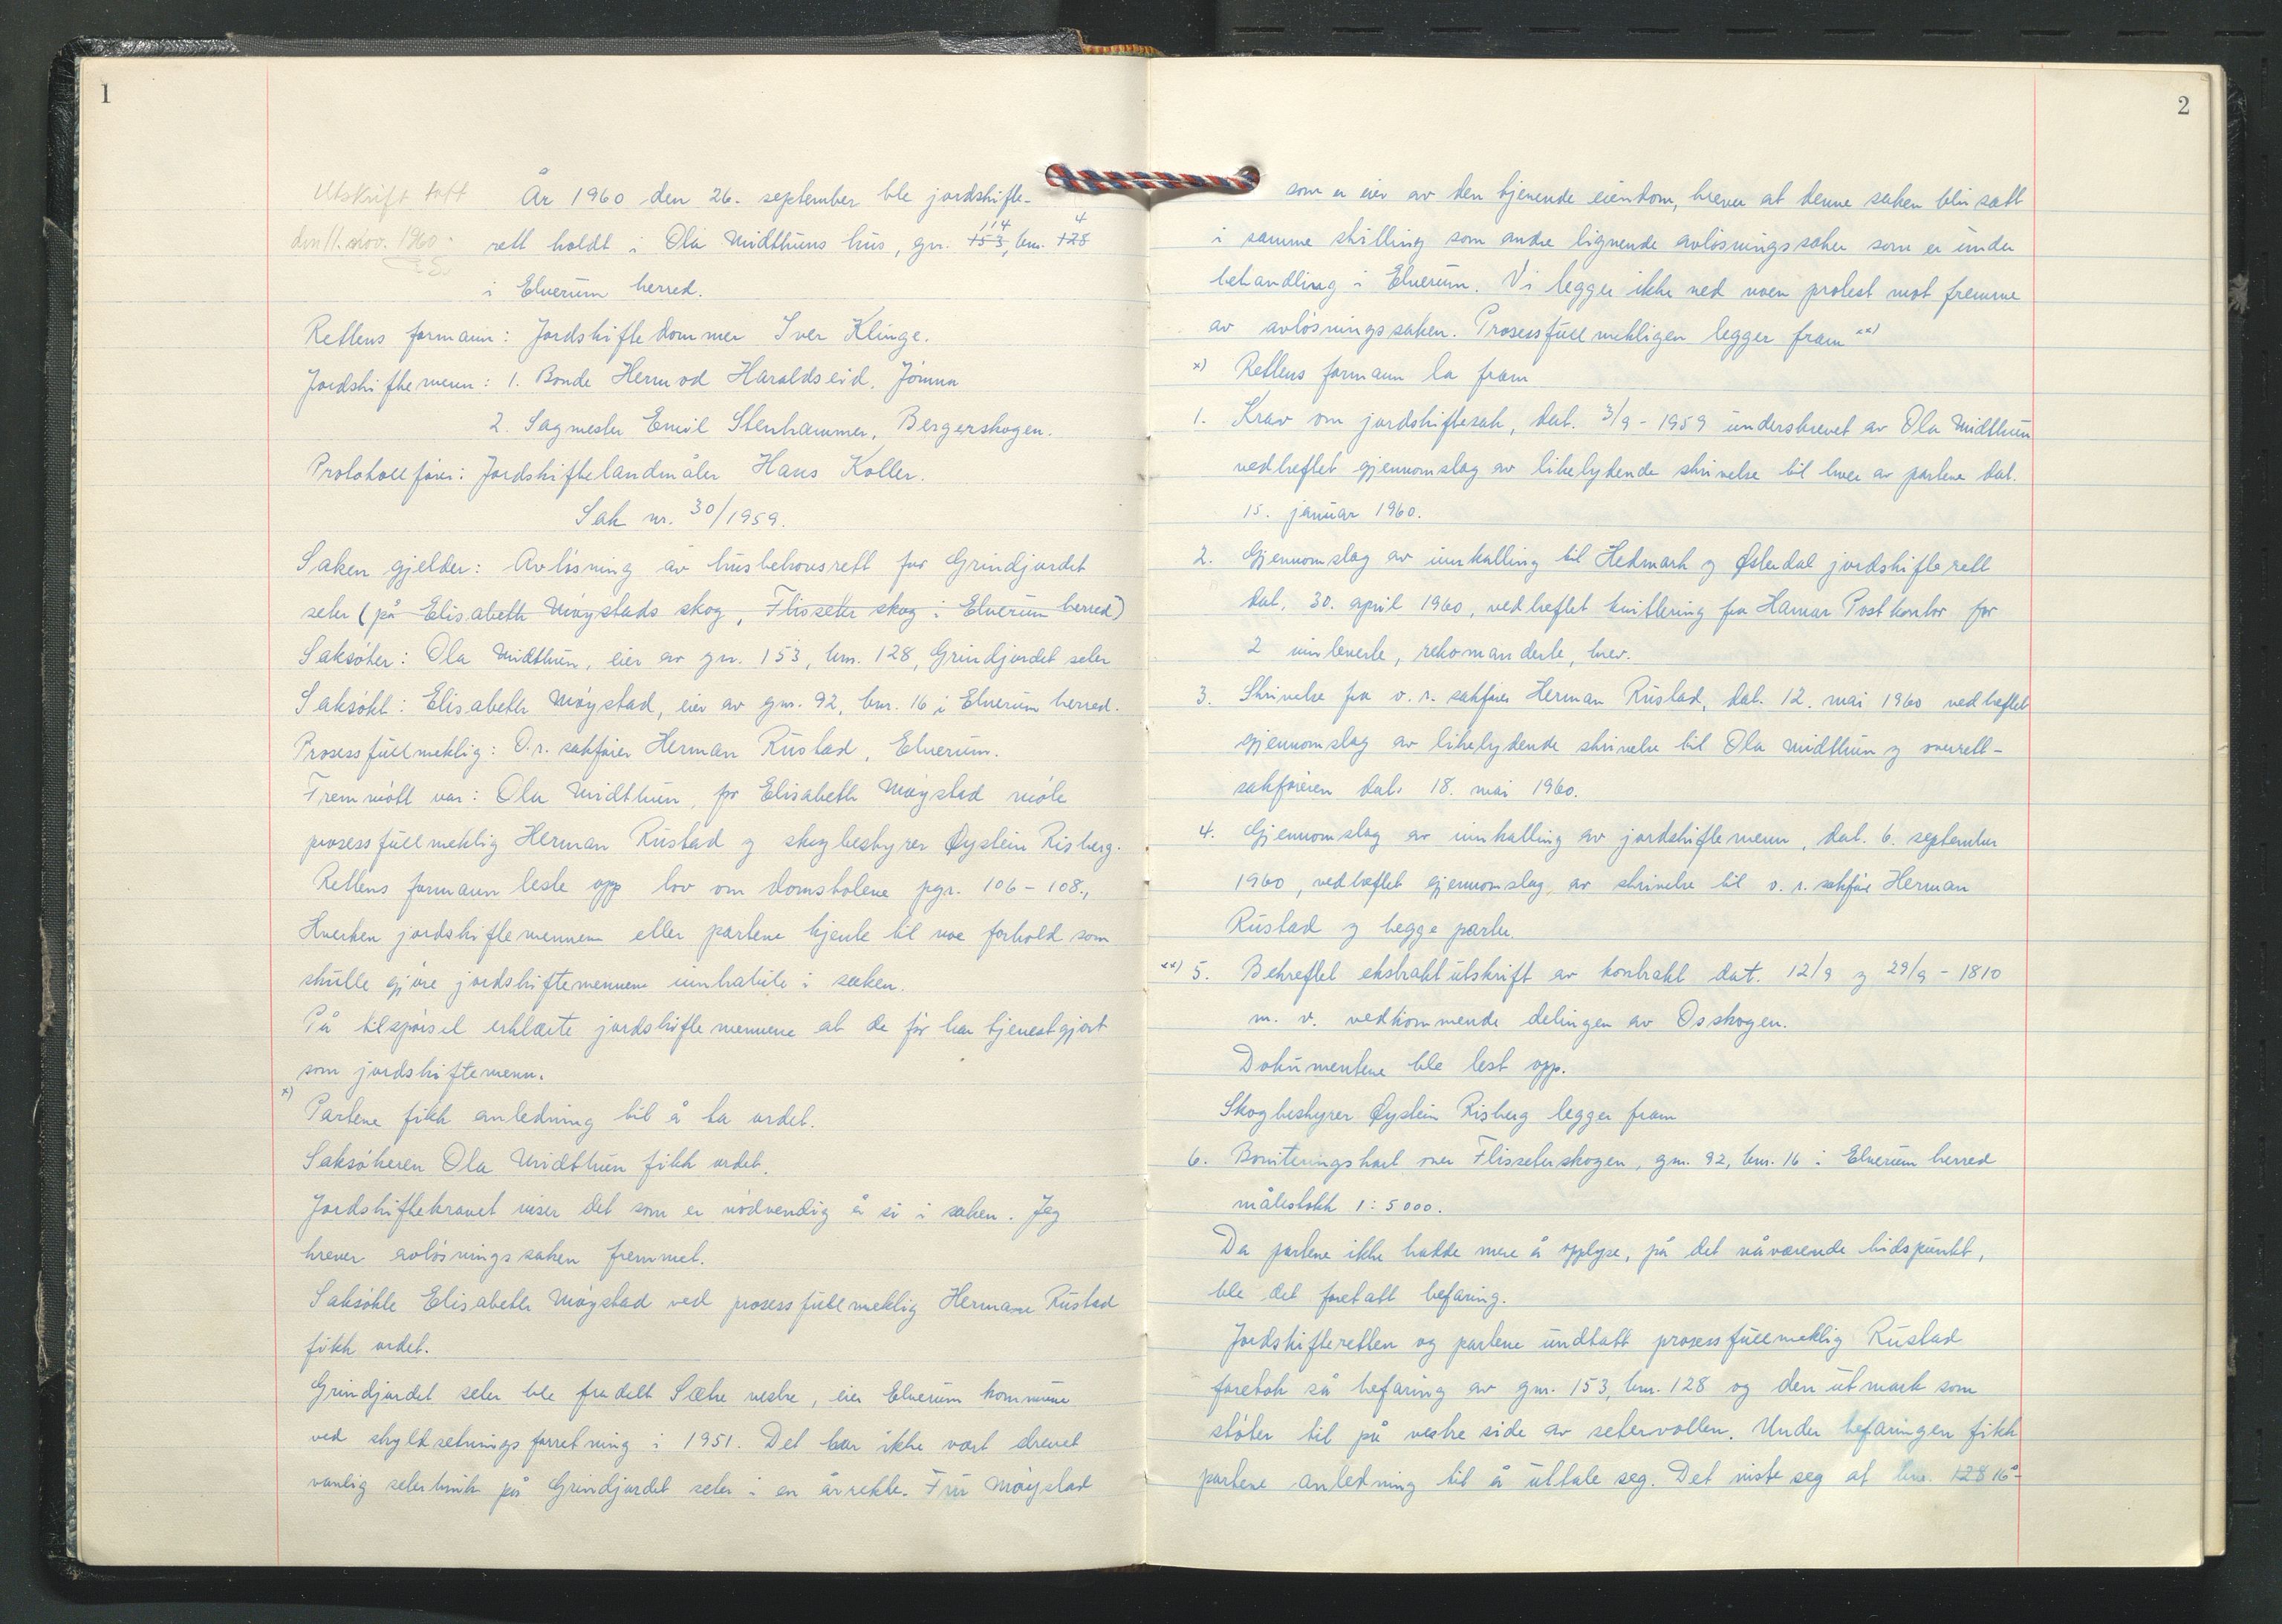 1
Utskrift tatt
den 11. nov. 1960.
År 1960 den 26. september ble jordskifte-
rett holdt i Ola Midthuns hus, gnr. 153, bnr. 128
114 4
i Elverum herred.
Rettens formann: Jordskiftedommer Iver Klinge.
Jordskiftemenn: 1. Bonde Hermod Haraldseid, Jömna
2. Sagmester Emil Stenhammer, Bergerskogen.
Protokollförer: Jordskiftelandmåler Hans Koller.
Sak nr. 30/1959.
Saken gjelder: Avlösning av husbehovsrett for Grindjordet
seter (på Elisabeth Möystads skog, Flisseter skog i Elverum herred)
Saksöker: Ola Midthun, eier av gnr. 153, bnr. 128, Grindjordet seter
Saksökt: Elisabeth Möystad, eier av gnr. 92, bnr. 16 i Elverum herred.
Prosessfullmektig: O.r. sakförer Herman Rustad, Elverum.
Fremmött var: Ola Midthun, for Elisabeth Möystad möte
prosessfullmektig Herman Rustad og skogbestyrer Øystein Risberg.
Rettens formann leste opp lov om domstolene pgr. 106 - 108.,
Hverken jordskiftemennene eller partene kjente til noe forhold som
skulle gjöre jordskiftemennene innhabile i saken.
På tilspörsel erklærte jordskiftemennene at de för har tjenestgjort
som jordskiftemenn.
x)
Partene fikk anledning til å ta ordet.
Saksökeren Ola Midthun fikk ordet.
Jordskiftekravet viser det som er nödvendig å si i saken. Jeg
krever avlösningssaken fremmet.
Saksökte Elisabeth Möystad ved prosessfullmektig Herman Rustad
fikk ordet.
Grindjordet seter ble fradelt Sætre vestre, eier Elverum kommune
ved skyldsetningsforretning i 1951. Det har ikke vært drevet
vanlig seterbruk på Grindjordet seter i en årrekke. Fru Möystad
2
som er eier av den tjenende eiendom, krever at denne saken blir satt
i samme stilling som andre lignende avlösningssaker som er under
behandling i Elverum. Vi legger ikke ned noen protest mot fremme
av avlösningssaken. Prosessfullmektigen legger fram xx)
x) Rettens formann la fram
1. Krav om jordskiftesak, dat. 3/9 - 1959 underskrevet av Ola Midthun
vedheftet gjennomslag av likelydende skrivelse til hver av partene dat.
15. januar 1960.
2. Gjennomslag av innkalling til Hedmark og Østerdal jordskifterett
dat. 30. april 1960, vedheftet kvittering fra Hamar Postkontor for
2 innleverte, rekomanderte, brev.
3. Skrivelse fra o. r. sakförer Herman Rustad, dat. 12. mai 1960 vedheftet
gjennomslag av likelydende skrivelse til Ola Midthun og overrett-
sakföreren dat. 18. mai 1960.
4. Gjennomslag av innkalling av jordskiftemenn, dat. 6. september
1960, vedheftet gjennomslag av skrivelse til o. r. sakförer Herman
Rustad og begge parter.
xx) 5. Bekreftet ekstraktutskrift av kontrakt dat. 12/9 og 29/9 - 1810
m. v. vedkommende delingen av Osskogen.
Dokumentene ble lest opp.
Skogbestyrer Øystein Risberg legger fram
6. Boniteringskart over Flisseterskogen, gnr. 92, bnr. 16 i Elverum herred
målestokk 1:5000.
Da partene ikke hadde mere å opplyse, på det nåværende tidspunkt,
ble det foretatt befaring.
Jordskifteretten og partene undtatt prosessfullmektig Rustad
foretok så befaring av gnr. 153, bnr. 128 og den utmark som
stöter til på vestre side av setervollen. Under befaringen fikk
partene anledning til å uttale seg. Det viste seg at bnr. 128